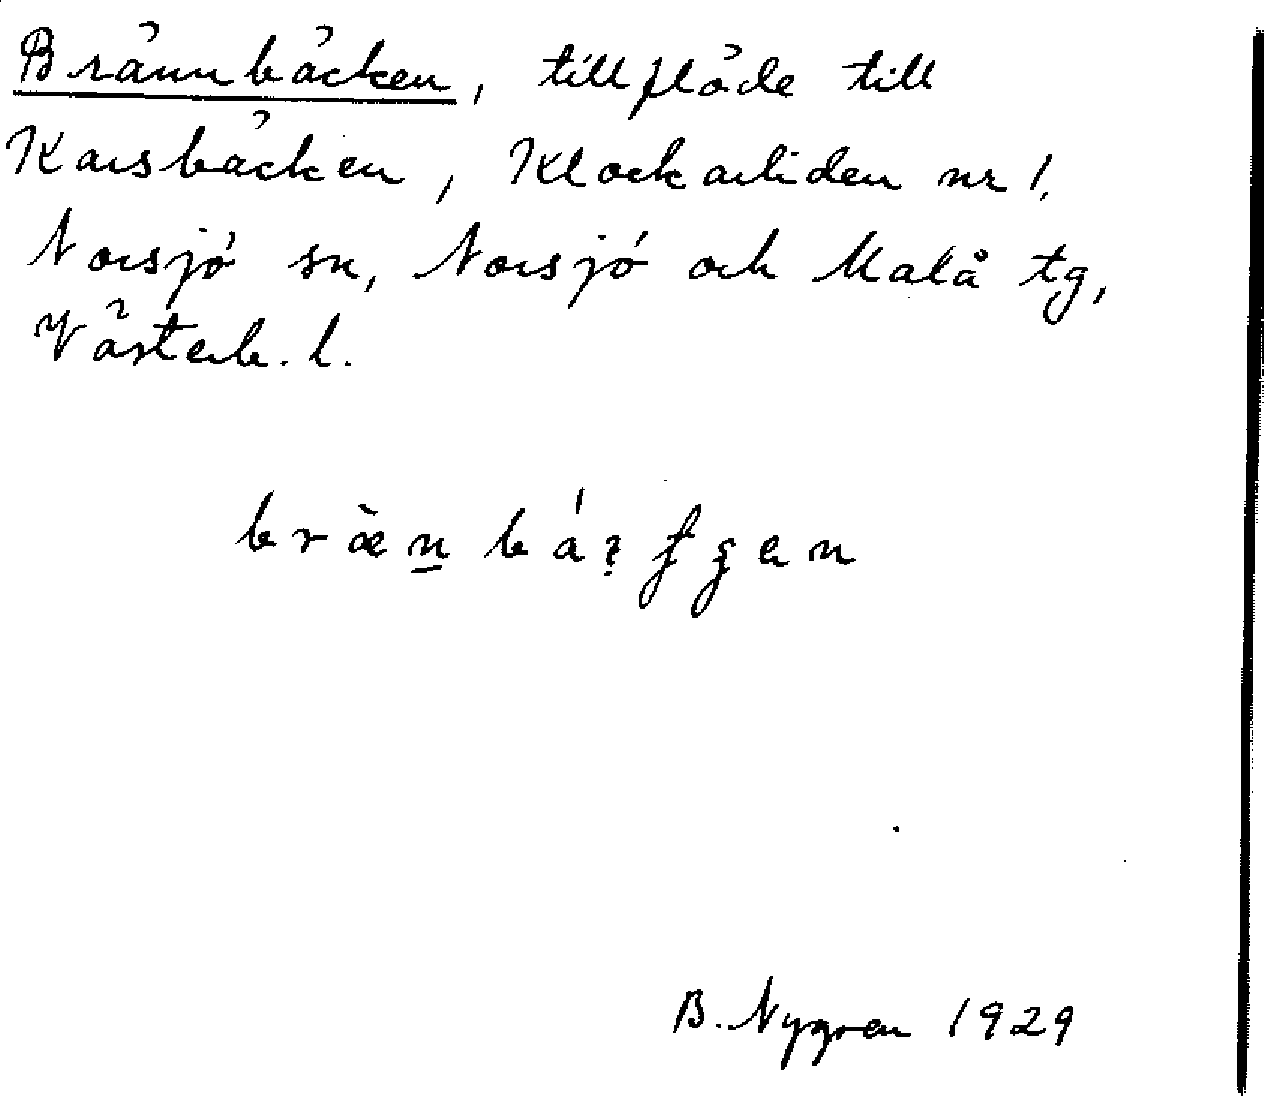 Brännbäcken, tillflöde till
Karsbäcken, Klockarliden nr 1,
Norsjö sn, Norsjö och Malå tg,
Västerb. l.
B. Nygren 1929